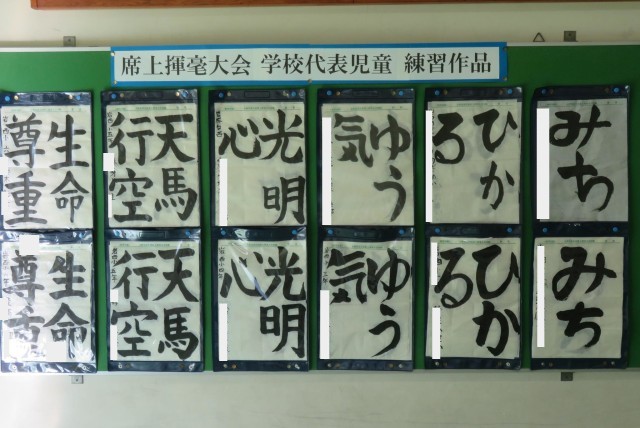 席上揮毫大会 学校代表児童 練習作品
みち
ひか
る
ゆう
気
光明
心
天馬
行空
生命
尊重
みち
ひか
る
ゆう
気
光明
心
天馬
行空
生命
尊重